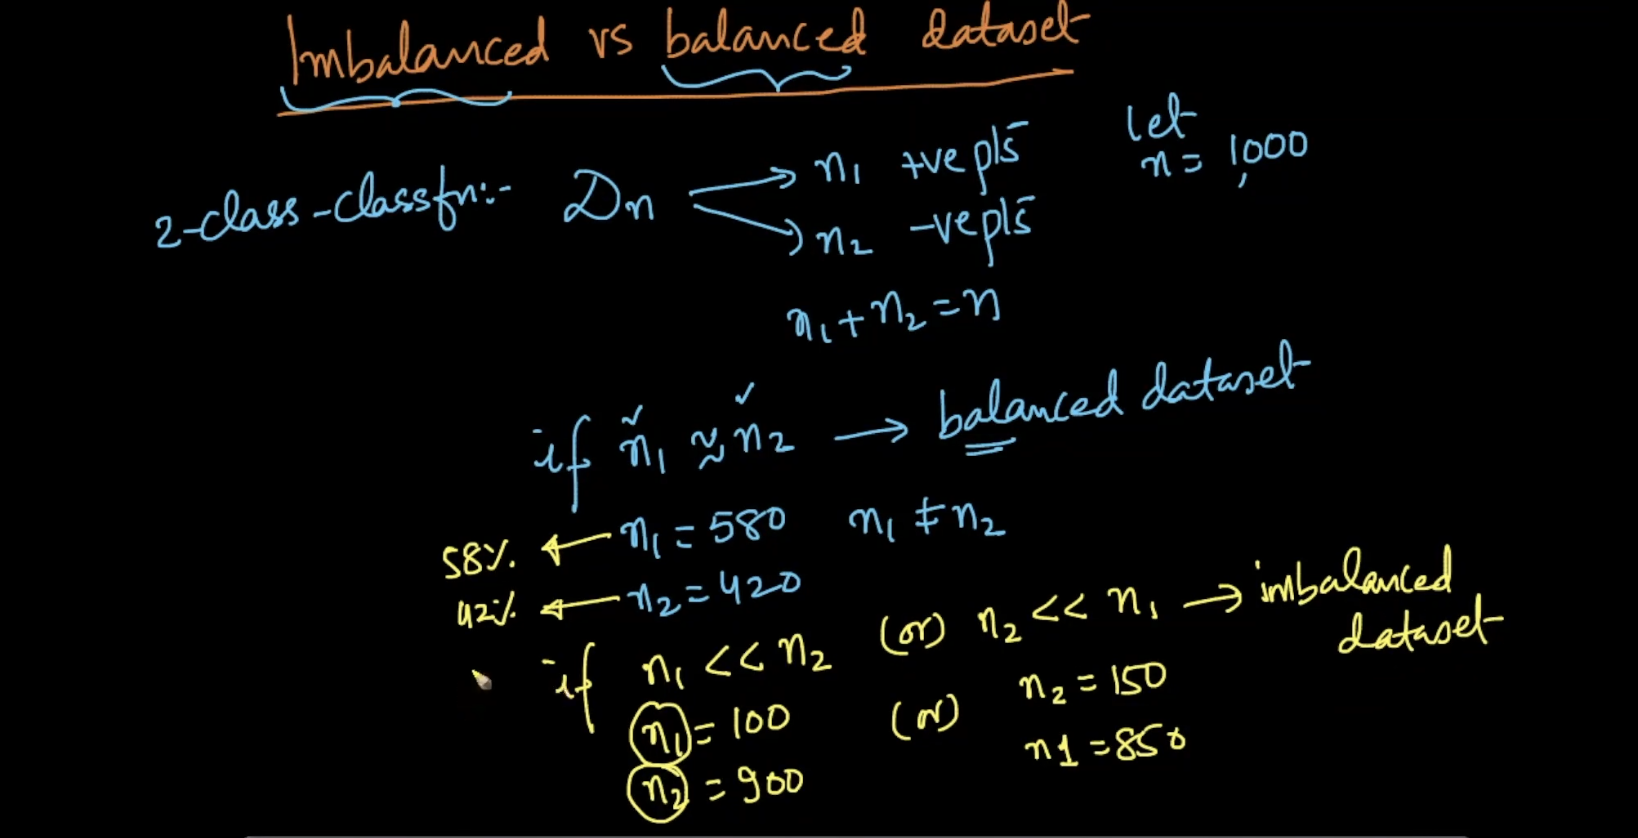 Imbalanced vs balanced dataset
let
n = 1,000
2-class-classfn:- Dn → n1 +ve pts
→ n2 -ve pts
n1 + n2 = n
if n1 ≈ n2 → balanced dataset
58% ← n1 = 580 n1 ≠ n2
42% ← n2 = 420
if n1 << n2 (or) n2 << n1 → imbalanced
dataset
n1 = 100 (or) n2 = 150
n2 = 900 n1 = 850